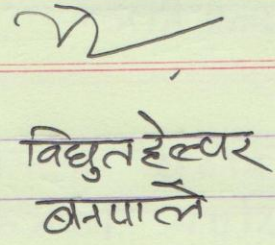 विधुत हेल्पर
बनपाले